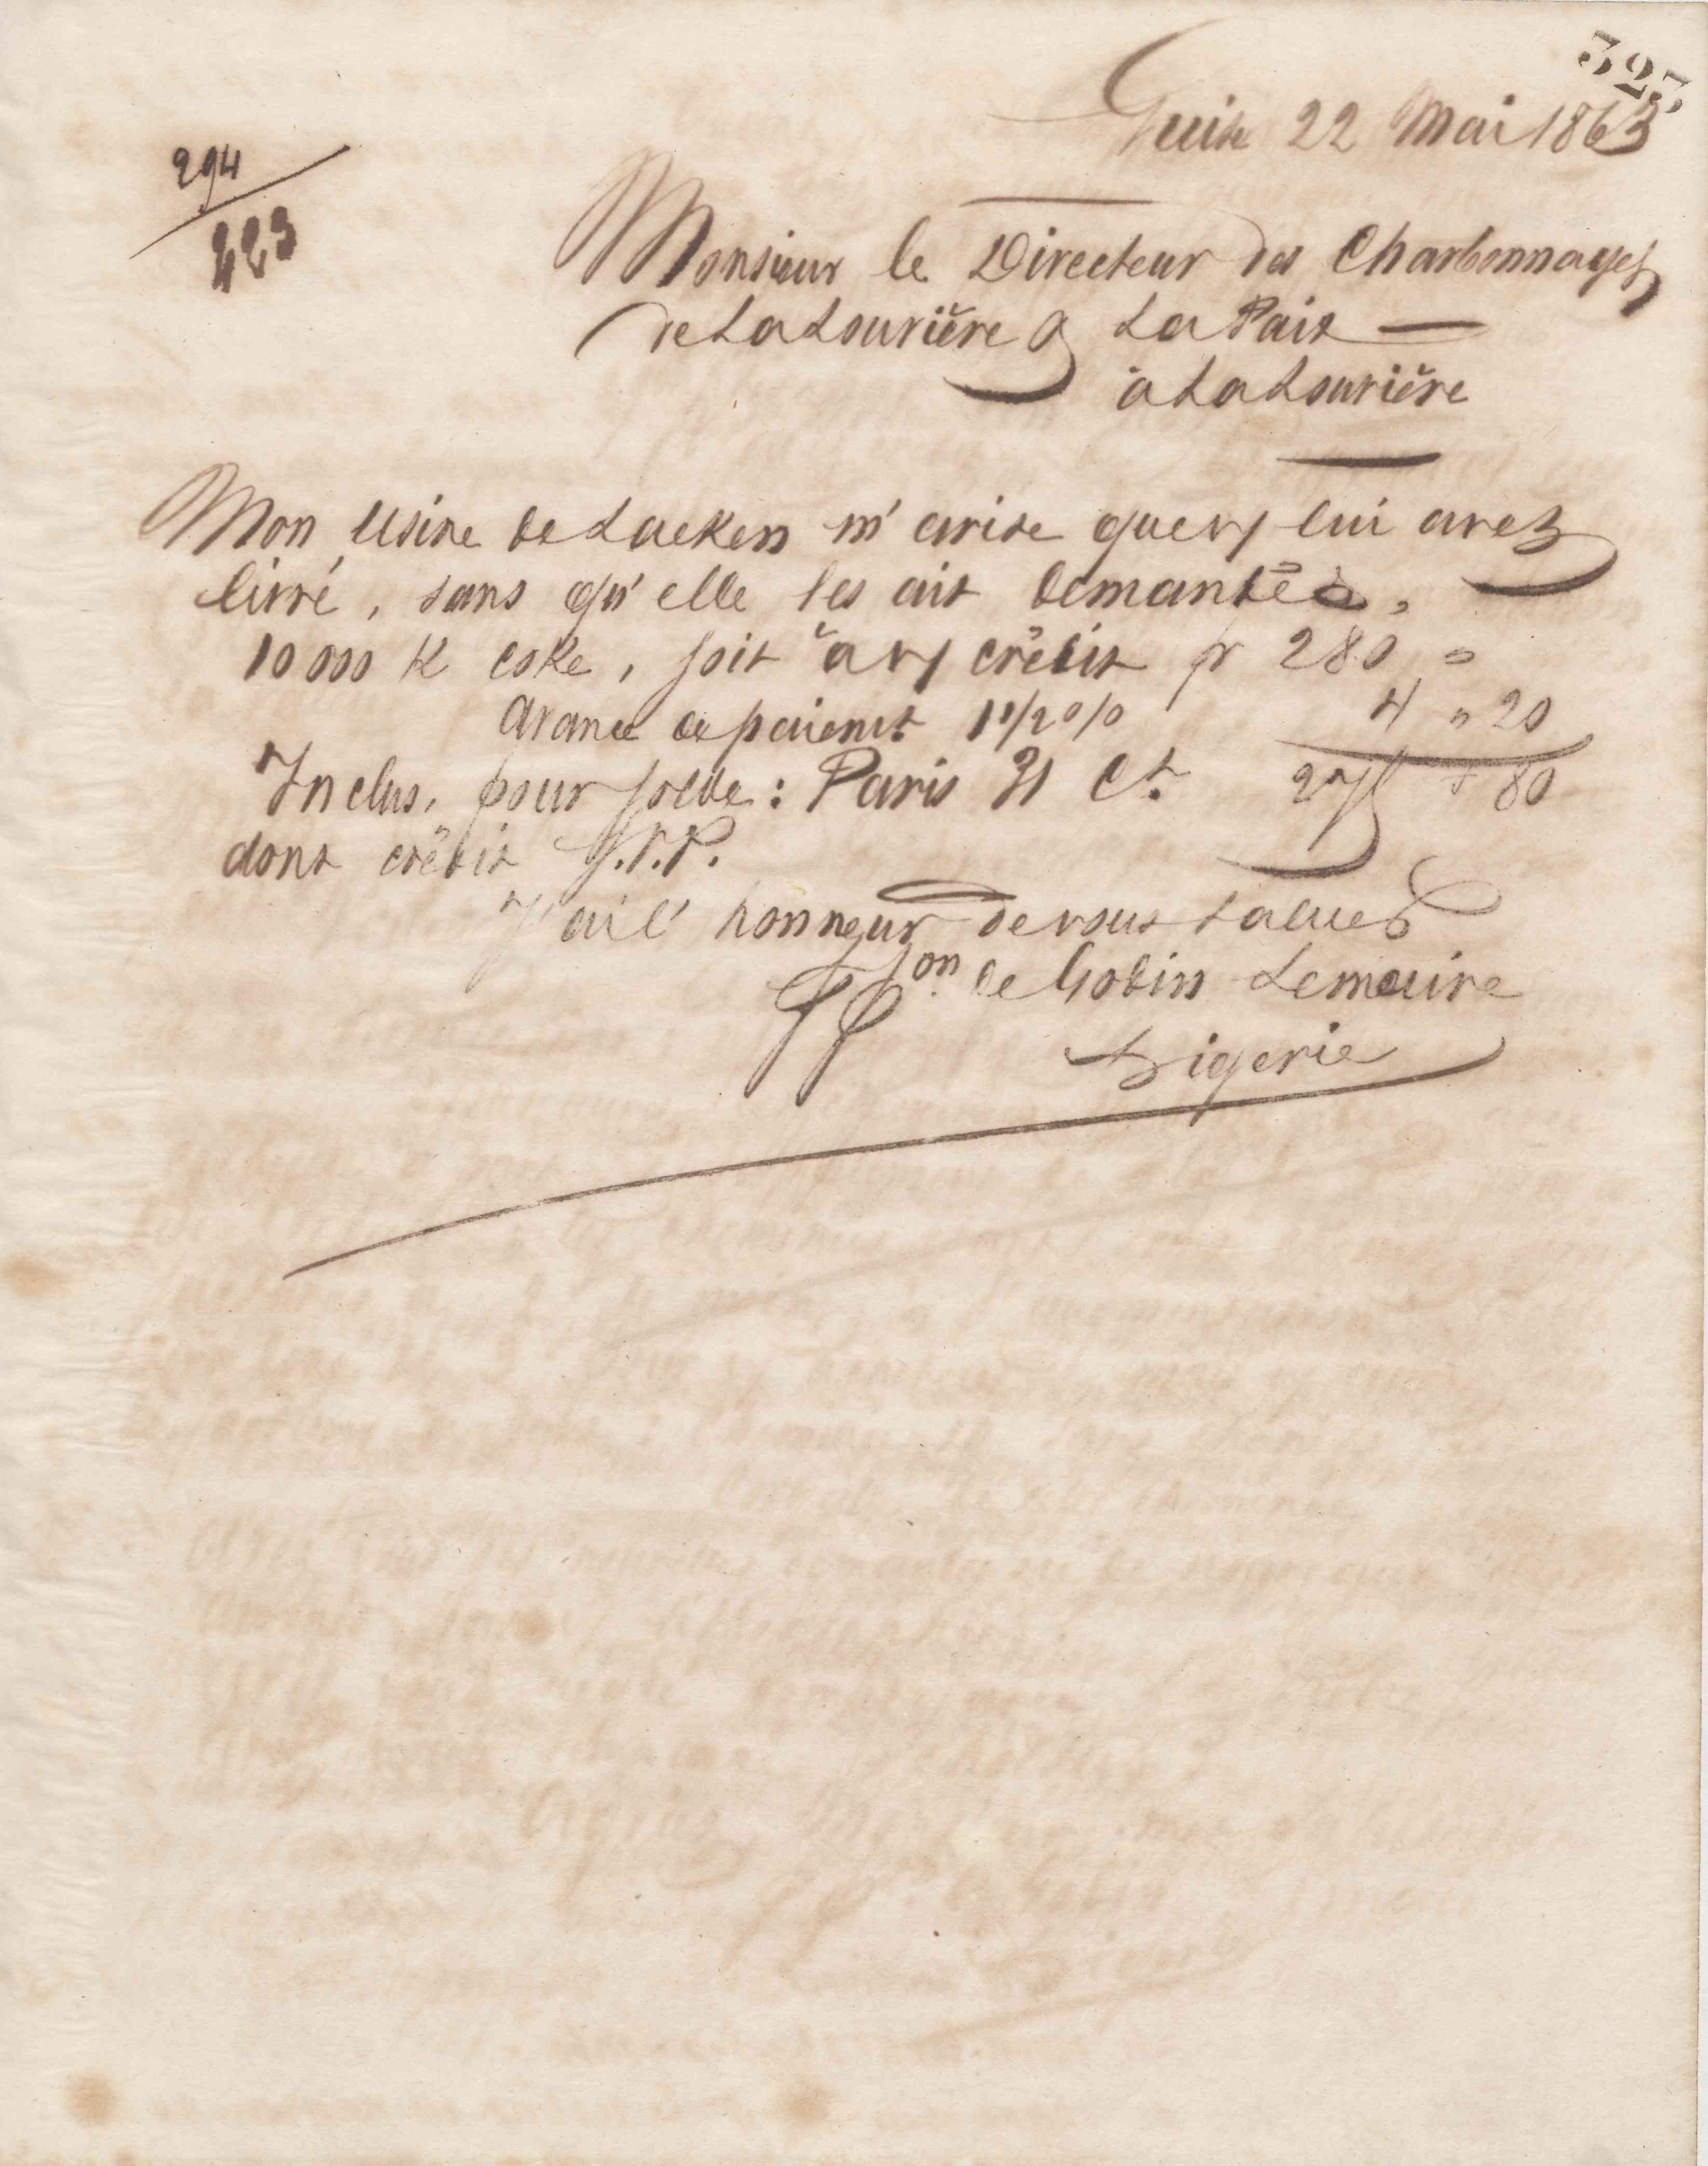 325
Guise 22 Mai 1863
294
223
Monsieur le Directeur des Charbonnages
de La Louvière & La Paix —
à La Louvière
Mon usine de Laeken m'avise que vs lui avez
livré, sans qu'elle les ait demandés,
10 000 K coke, soit à vs crédit fr 280 "
avance de paiemt 1 1/2 % 4 " 20
Inclus, pour solde : Paris 31 Ct. 275 " 80
dont crédit S.V.P.
J'ai l'honneur de vous saluer
pp on de Godin Lemaire